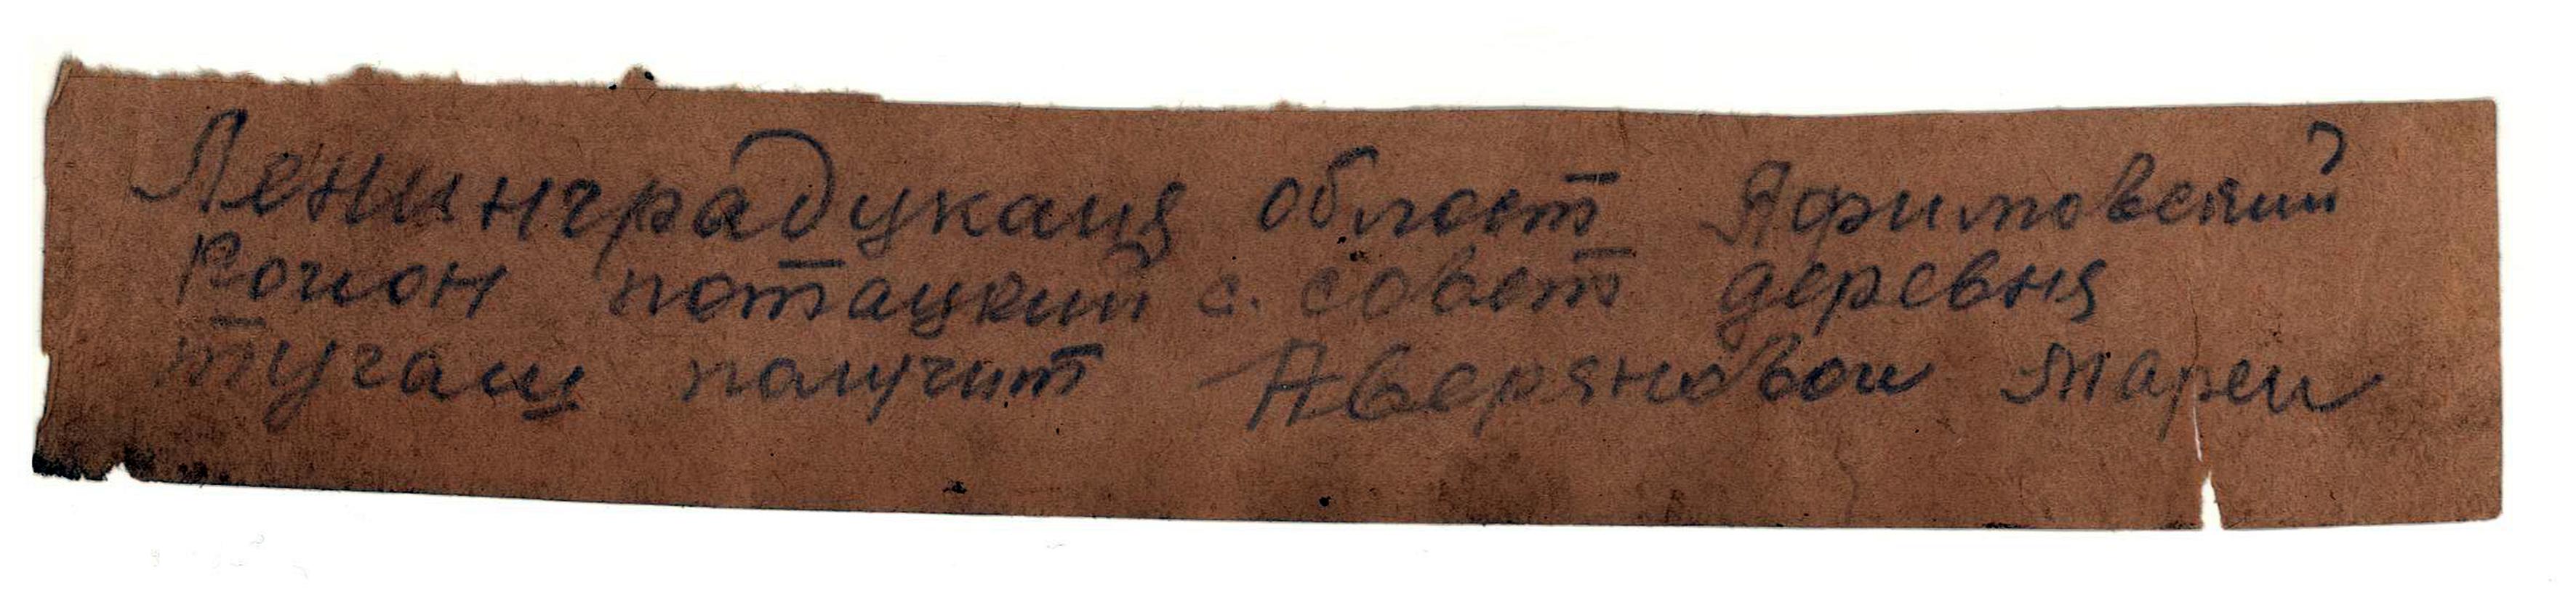 Ленинградцкаия област Яфимовский
Рогион потацкий с. совет деревня
тугаш получит Аверяновои Мареи